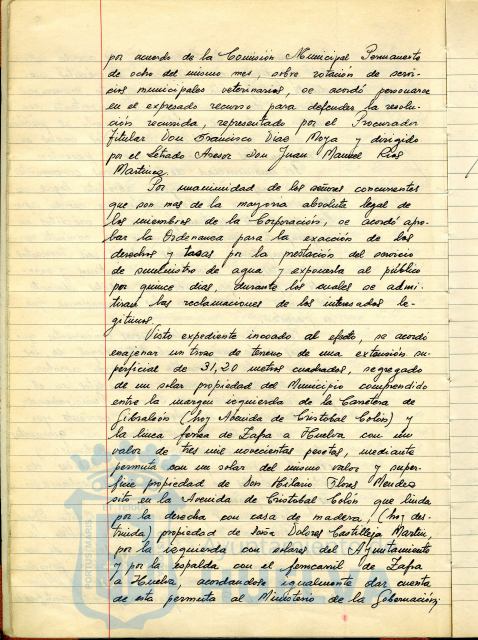 por acuerdo de la Comisión Municipal Permanente
de ocho del mismo mes, sobre rotación de servi-
cios municipales veterinarios, se acordó personarse
en el expresado recurso para defender la resolu-
ción recurrida, representado por el Procurador
Titular Don Francisco Díaz Moya y dirigido
por el Letrado Asesor Don Juan Manuel Rios
Martinez.
Por unanimidad de los señores concurrentes
que son mas de la mayoria absoluta legal de
los miembros de la Corporación, se acordó apro-
bar la Ordenanza para la exacción de los
derechos y tasas por la prestación del servicio
de suministro de agua y exponerla al público
por quince dias, durante los cuales se admi-
tiran las reclamaciones de los interesados le-
gitimos.
Visto expediente incoado al efecto, se acordó
enajenar un trozo de terreno de una extensión su-
perficial de 31,20 metros cuadrados, segregado
de un solar propiedad del Municipio comprendido
entre la margen izquierda de la Carretera de
Gibraleón (hoy Avenida de Cristobal Colón) y
la linea ferrea de Zafra a Huelva con un
valor de tres mil novecientas pesetas, mediante
permuta con un solar del mismo valor y super-
ficie propiedad de Don Hilario Flores Mendez
sito en la Avenida de Cristobal Colón que linda
por la derecha con casa de madera, (hoy des-
truida) propiedad de Doña Dolores Castilleja Martin,
por la izquierda con solares del Ayuntamiento
y por la espalda con el ferrocarril de Zafra
a Huelva, acordandose igualmente dar cuenta
de esta permuta al Ministerio de la Gobernación;